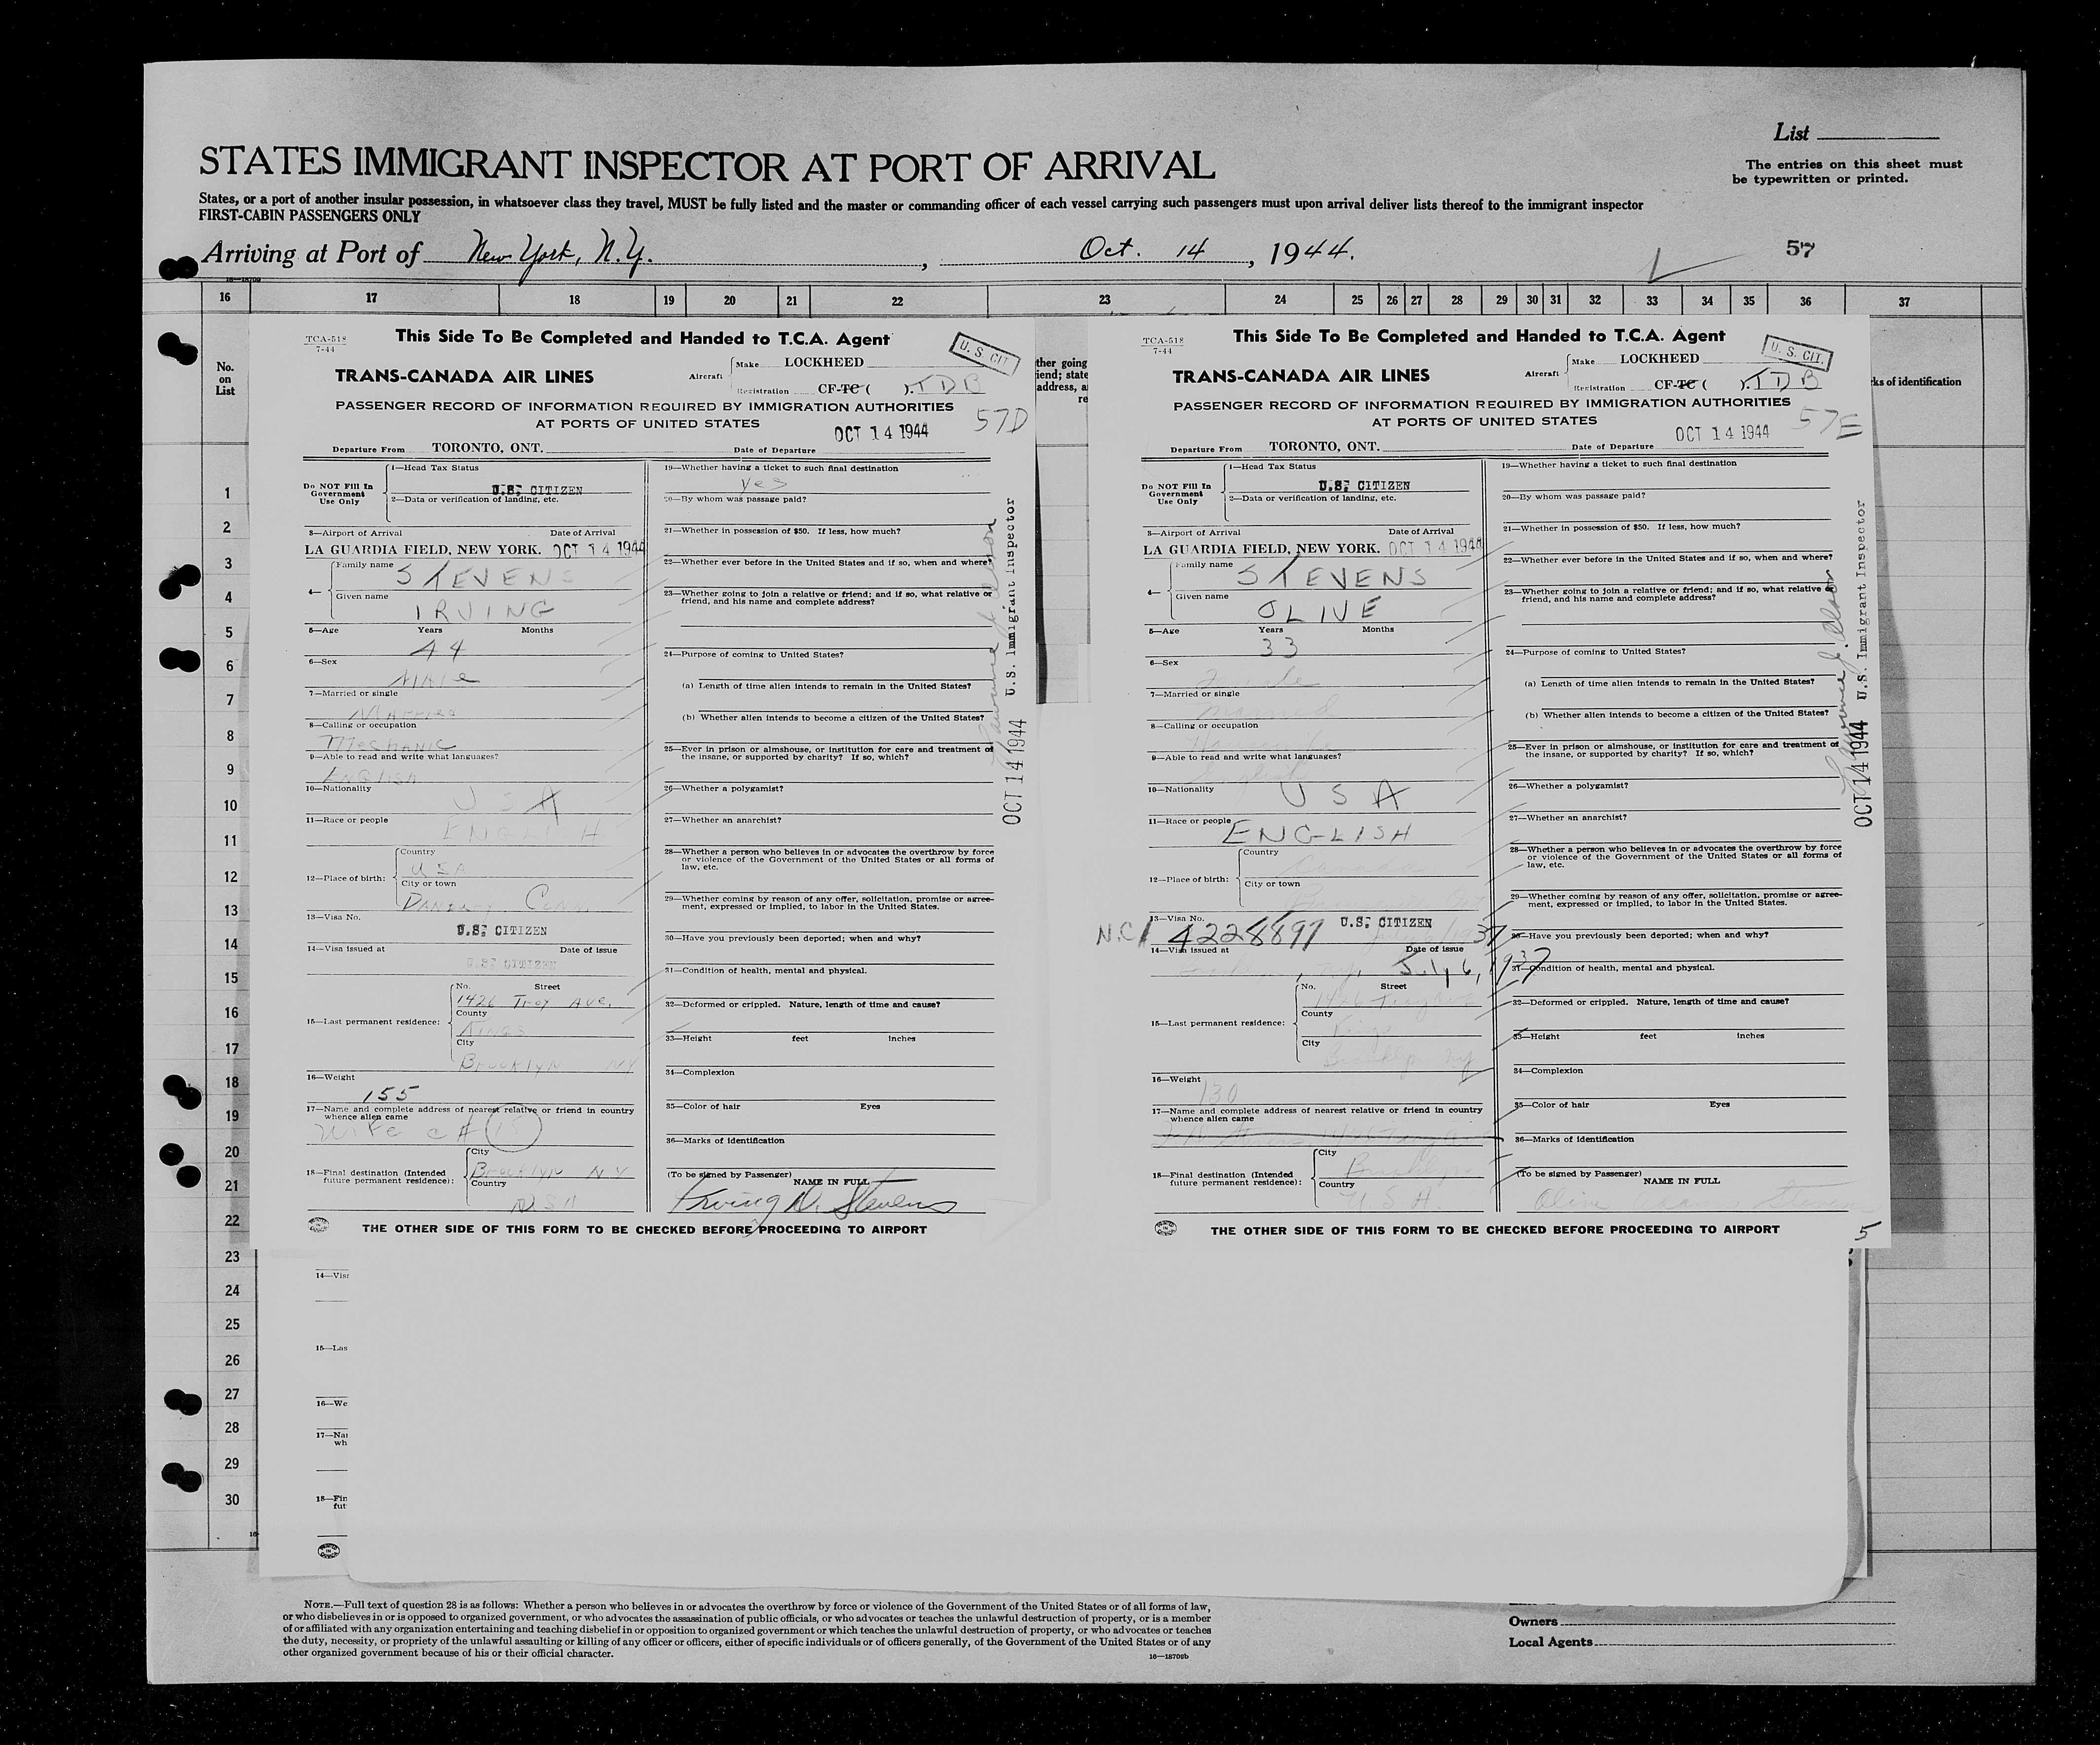 List
STATES IMMIGRANT INSPECTOR AT PORT OF ARRIVAL
The entries on this sheet must
be typewritten or printed.
States, or a port of another insular possession, in whatsoever class they travel, MUST be fully listed and the master or commanding officer of each vessel carrying such passengers must upon arrival deliver lists thereof to the immigrant inspector
FIRST-CABIN PASSENGERS ONLY
Arriving at Port of New York, N.Y., Oct. 14, 1944.
57
16 17 18 19 20 21 22 23 24 25 26 27 28 29 30 31 32 33 34 35 36 37
No.
on
List
1
2
3
4
5
6
7
8
9
10
11
12
13
14
15
16
17
18
19
20
21
22
23
24
25
26
27
28
29
30
TCA-518
7-44
This Side To Be Completed and Handed to T.C.A. Agent
U. S. CIT.
TRANS-CANADA AIR LINES
Aircraft
Make LOCKHEED
Registration CF-TC ( ). TDB
PASSENGER RECORD OF INFORMATION REQUIRED BY IMMIGRATION AUTHORITIES
AT PORTS OF UNITED STATES
57D
OCT 14 1944
Departure From TORONTO, ONT. Date of Departure
Do NOT Fill In
Government
Use Only
1—Head Tax Status
U.S. CITIZEN
2—Data or verification of landing, etc.
3—Airport of Arrival Date of Arrival
LA GUARDIA FIELD, NEW YORK. OCT 14 1944
4—
Family name STEVENS
Given name IRVING
5—Age Years Months
44
6—Sex
Male
7—Married or single
Married
8—Calling or occupation
Mechanic
9—Able to read and write what languages?
English
10—Nationality
USA
11—Race or people
ENGLISH
12—Place of birth:
Country
USA
City or town
Danbury Conn
13—Visa No.
U.S. CITIZEN
14—Visa issued at Date of issue
U.S. CITIZEN
15—Last permanent residence:
No. Street
1426 Troy Ave.
County
Kings
City
Brooklyn NY
16—Weight
155
17—Name and complete address of nearest relative or friend in country
whence alien came
Wife
18—Final destination (Intended
future permanent residence):
City
Brooklyn N Y
Country
USA
19—Whether having a ticket to such final destination
Yes
20—By whom was passage paid?
21—Whether in possession of $50. If less, how much?
22—Whether ever before in the United States and if so, when and where?
23—Whether going to join a relative or friend; and if so, what relative or
friend, and his name and complete address?
24—Purpose of coming to United States?
(a) Length of time alien intends to remain in the United States?
(b) Whether alien intends to become a citizen of the United States?
25—Ever in prison or almshouse, or institution for care and treatment of
the insane, or supported by charity? If so, which?
26—Whether a polygamist?
27—Whether an anarchist?
28—Whether a person who believes in or advocates the overthrow by force
or violence of the Government of the United States or all forms of
law, etc.
29—Whether coming by reason of any offer, solicitation, promise or agree-
ment, expressed or implied, to labor in the United States.
30—Have you previously been deported; when and why?
31—Condition of health, mental and physical.
32—Deformed or crippled. Nature, length of time and cause?
33—Height feet inches
34—Complexion
35—Color of hair Eyes
36—Marks of identification
(To be signed by Passenger)
NAME IN FULL
Irving N. Stevens
THE OTHER SIDE OF THIS FORM TO BE CHECKED BEFORE PROCEEDING TO AIRPORT
OCT 14 1944 U.S. Immigrant Inspector
ther going
iend; state
address, a
re
TCA-518
7-44
This Side To Be Completed and Handed to T.C.A. Agent
U. S. CIT.
TRANS-CANADA AIR LINES
Aircraft
Make LOCKHEED
Registration CF-TC ( ). TDB
PASSENGER RECORD OF INFORMATION REQUIRED BY IMMIGRATION AUTHORITIES
AT PORTS OF UNITED STATES
57E
OCT 14 1944
Departure From TORONTO, ONT. Date of Departure
Do NOT Fill In
Government
Use Only
1—Head Tax Status
U.S. CITIZEN
2—Data or verification of landing, etc.
3—Airport of Arrival Date of Arrival
LA GUARDIA FIELD, NEW YORK. OCT 14 1944
4—
Family name STEVENS
Given name OLIVE
5—Age Years Months
33
6—Sex
Female
7—Married or single
Married
8—Calling or occupation
9—Able to read and write what languages?
English
10—Nationality
USA
11—Race or people
ENGLISH
12—Place of birth:
Country
Canada
City or town
13—Visa No.
U.S. CITIZEN
N.C. 4228897
14—Visa issued at Date of issue
July 6, 1937
15—Last permanent residence:
No. Street
1426 Troy Ave
County
Kings
City
Brooklyn NY
16—Weight
130
17—Name and complete address of nearest relative or friend in country
whence alien came
18—Final destination (Intended
future permanent residence):
City
Brooklyn
Country
U.S.A
19—Whether having a ticket to such final destination
20—By whom was passage paid?
21—Whether in possession of $50. If less, how much?
22—Whether ever before in the United States and if so, when and where?
23—Whether going to join a relative or friend; and if so, what relative or
friend, and his name and complete address?
24—Purpose of coming to United States?
(a) Length of time alien intends to remain in the United States?
(b) Whether alien intends to become a citizen of the United States?
25—Ever in prison or almshouse, or institution for care and treatment of
the insane, or supported by charity? If so, which?
26—Whether a polygamist?
27—Whether an anarchist?
28—Whether a person who believes in or advocates the overthrow by force
or violence of the Government of the United States or all forms of
law, etc.
29—Whether coming by reason of any offer, solicitation, promise or agree-
ment, expressed or implied, to labor in the United States.
30—Have you previously been deported; when and why?
31—Condition of health, mental and physical.
32—Deformed or crippled. Nature, length of time and cause?
33—Height feet inches
34—Complexion
35—Color of hair Eyes
36—Marks of identification
(To be signed by Passenger)
NAME IN FULL
Olive Stevens
THE OTHER SIDE OF THIS FORM TO BE CHECKED BEFORE PROCEEDING TO AIRPORT
5
OCT 14 1944 U.S. Immigrant Inspector
ks of identification
14—Vis
15—Las
16—We
17—Na
wh
18—Fin
fut
NOTE.—Full text of question 28 is as follows: Whether a person who believes in or advocates the overthrow by force or violence of the Government of the United States or of all forms of law,
or who disbelieves in or is opposed to organized government, or who advocates the assassination of public officials, or who advocates or teaches the unlawful destruction of property, or is a member
of or affiliated with any organization entertaining and teaching disbelief in or opposition to organized government or which teaches the unlawful destruction of property, or who advocates or teaches
the duty, necessity, or propriety of the unlawful assaulting or killing of any officer or officers, either of specific individuals or of officers generally, of the Government of the United States or of any
other organized government because of his or their official character.
16—18709b
Owners
Local Agents